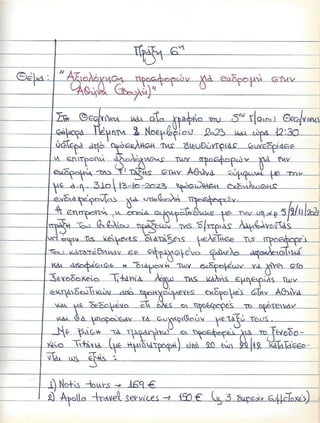 Πράξη 6η
Θέμα: "Αξιολόγηση προσφορών για εκδρομή στην
Αθήνα (Βουλή)"
Στη Θεσ/νίκη και στο γραφείο του 5ου Γ/σίου Θεσ/νίκης
σήμερα Πέμπτη 2 Νοεμβρίου 2023 και ώρα 12:30
ύστερα από πρόσκληση της διευθύντριας συνεδρίασε
η επιτροπή αξιολόγησης των προσφορών για την
εκδρομή της Γ' τάξης στην Αθήνα σύμφωνα με την
με α.π. 310/13-10-2023 πρόσκληση εκδήλωσης
ενδιαφέροντος για υποβολή προσφορών.
Η επιτροπή, η οποία συγκροτήθηκε με την υπ.αρ. 5/2/11/202
πράξη του βιβλίου πράξεων της δ/ντριας λαμβάνοντας
υπ'όψην τις κείμενες διατάξεις μελέτησε τις προσφορές
που κατατέθηκαν σε σφραγισμένο φάκελο
και αποφάσισε η διαμονή των εκδρομέων να γίνει στο
ξενοδοχείο Τιτάνια λόγω της καλής εμπειρίας των
εκπαιδευτικών από προηγούμενες εκδρομές στην Αθήνα
και με δεδομένο ότι όλες οι προσφορές το πρότειναν
και θα μπορούσαν να συγκριθούν μεταξύ τους.
Με βάση τα παραπάνω οι προσφορές για το ξενοδο-
χείο Τιτάνια (με ημιδιατροφή) από 20 έως 22/12
νται ως εξής:
1) Notis tours → 169 €
2) Apollo travel services → 150 € (η 3 δωρεάν συμμετοχές)